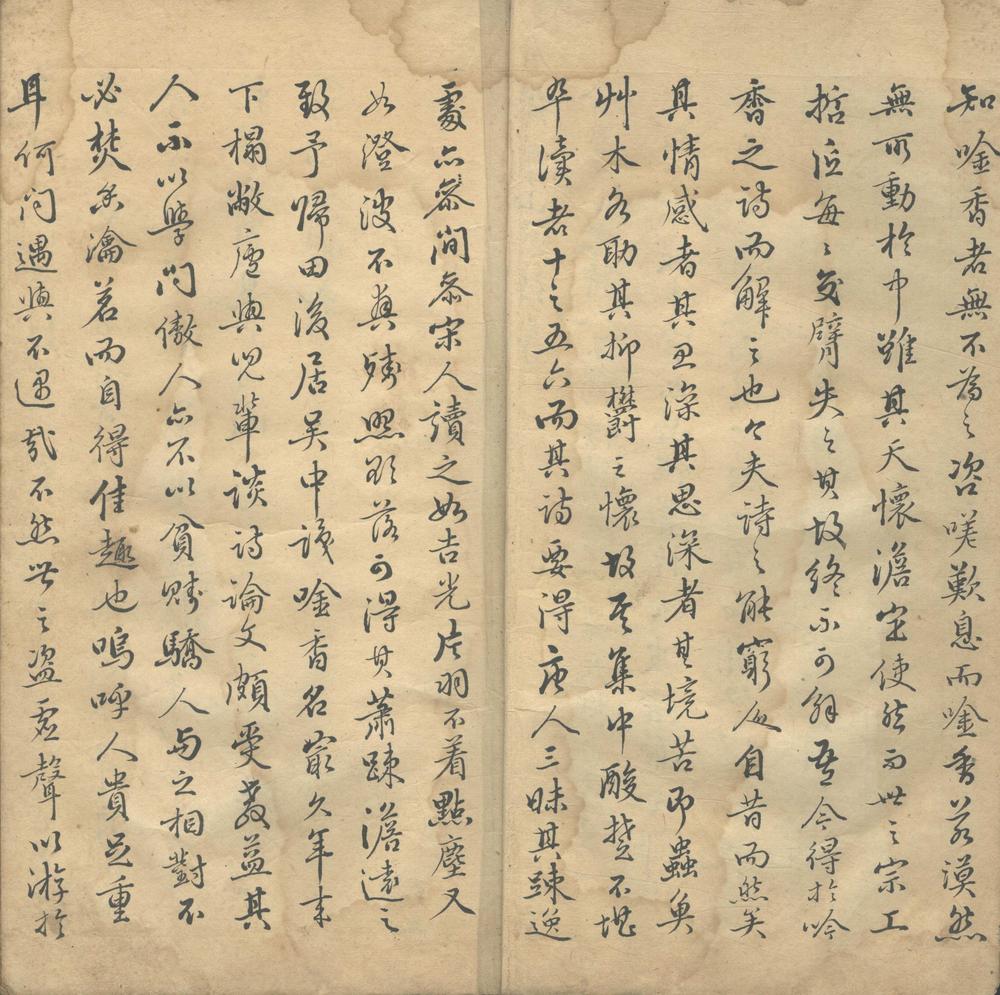 知唫香者無不為之咨嗟歎息而唫香若漠然
無所動於中雖其天懷澹定使然而世之宗工
哲匠每〻交臂失之其故終不可解吾今得於吟
香之詩而解之也今夫詩之能窮人自昔而然矣
其情感者其思深其思深者其境苦即蟲魚
艸木各助其抑欝之懷故其集中酸楚不堪
卒讀者十之五六而其詩要得唐人三昧其疎逸
處亦叅間叅宋人讀之如吉光片羽不着點塵又
如澄波不興殘照欲落可得其蕭疎澹遠之
致予歸田後居吳中識唫香名最久年來
下榻敝廬與兒輩談詩論文頗受教益其
人不以學問傲人亦不以貧賤驕人與之相對不
必焚香瀹茗而自得佳趣也嗚呼人貴足重
耳何問遇與不遇哉不然世之盜虛聲以游於